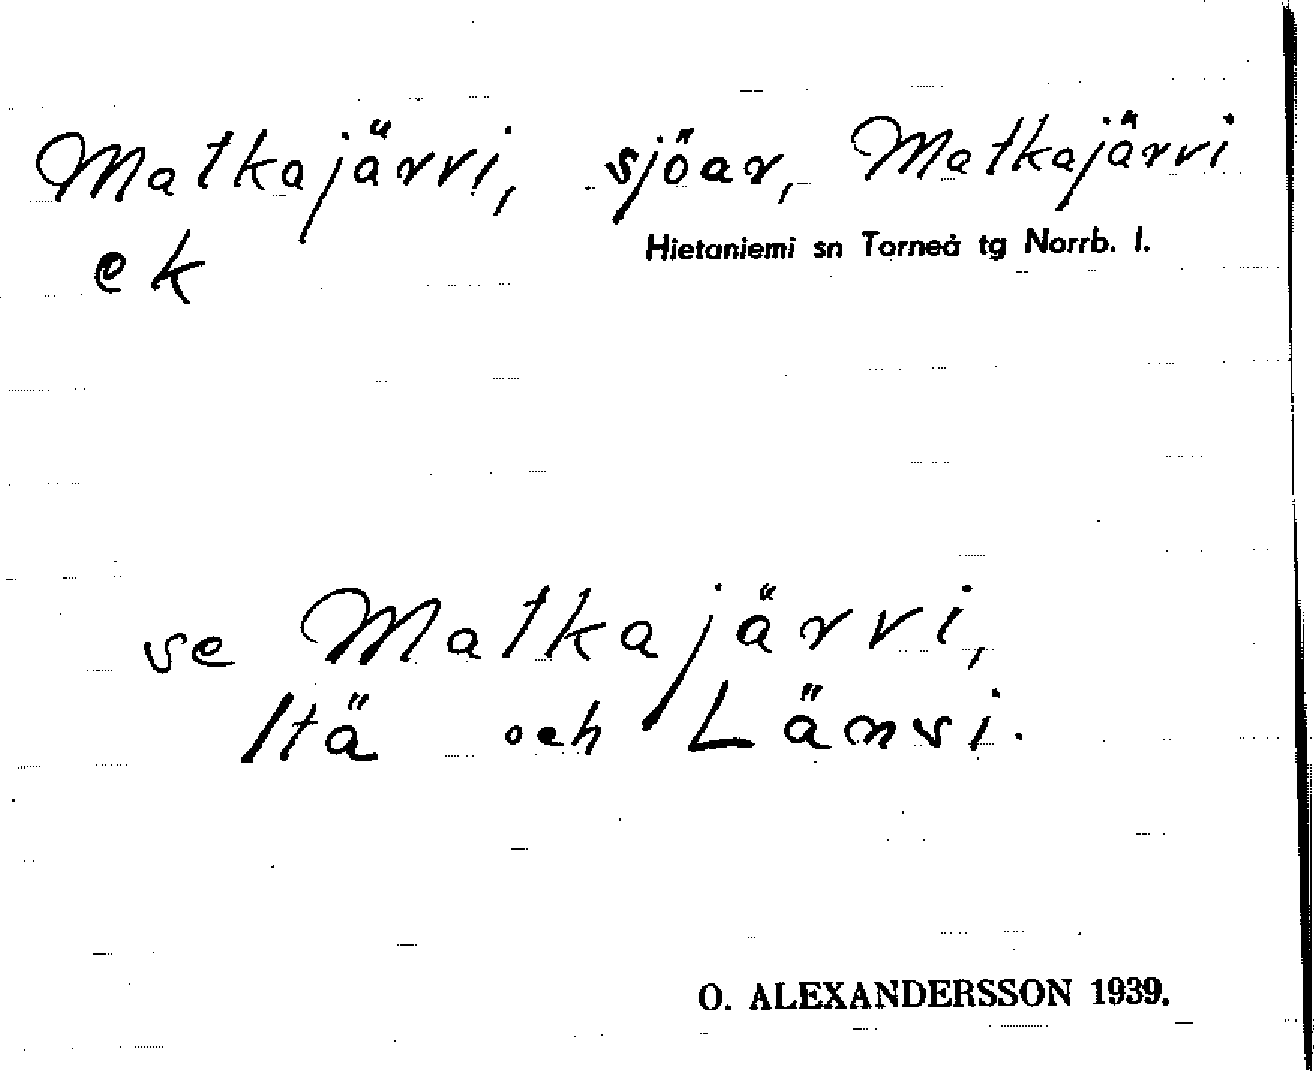 Matkajärvi, sjöar, Matkajärvi
ek
Hietaniemi sn Torneå tg Norrb. l.
se Matkajärvi,
Itä och Länsi.
O. ALEXANDERSSON 1939.